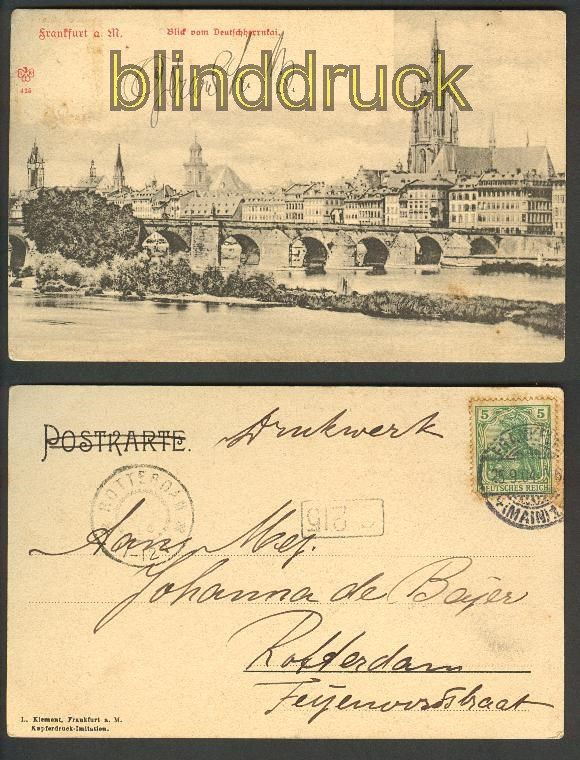 Frankfurt a. M.
Blick vom Deutschherrnkai.
blinddruck
425
POSTKARTE.
Drukwerk
5 5
DEUTSCHES REICH
(MAIN) 1
ROTTERDAM
215
Aan Mej.
Johanna de Beijer
Rotterdam
Feijenoordstraat
L. Klement, Frankfurt a. M.
Kupferdruck-Imitation.